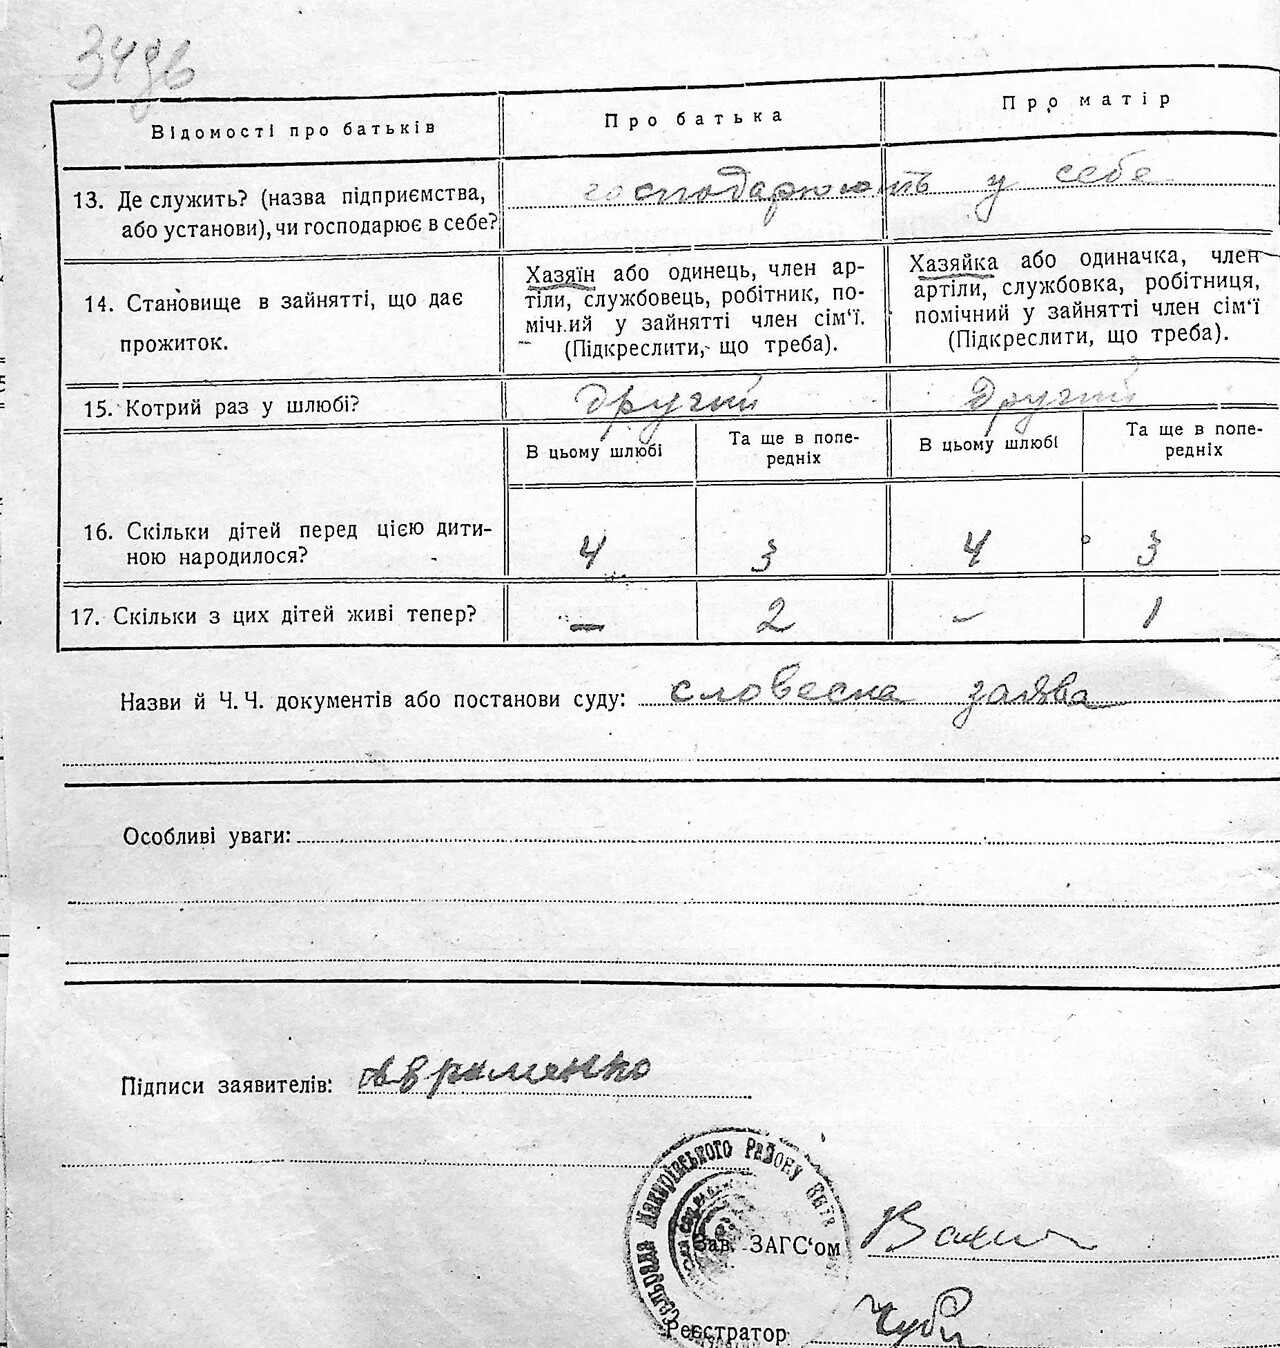 34дв
Відомості про батьків
Про батька
Про матір
13. Де служить? (назва підприємства,
або установи), чи господарює в себе?
господарюють у себе
14. Становище в зайнятті, що дає
прожиток.
Хазяїн або одинець, член ар-
тіли, службовець, робітник, по-
мічний у зайнятті член сім'ї.
(Підкреслити, що треба).
Хазяйка або одиначка, член
артіли, службовка, робітниця,
помічний у зайнятті член сім'ї
(Підкреслити, що треба).
15. Котрий раз у шлюбі?
другий
другий
В цьому шлюбі
Та ще в попе-
редніх
В цьому шлюбі
Та ще в попе-
редніх
16. Скільки дітей перед цією дити-
ною народилося?
4
3
4
3
17. Скільки з цих дітей живі тепер?
—
2
-
1
Назви й Ч. Ч. документів або постанови суду: словесна заява
Особливі уваги:
Підписи заявителів: Авраменко
Сільрада Макарівського Району
Зав. ЗАГС'ом
Реєстратор